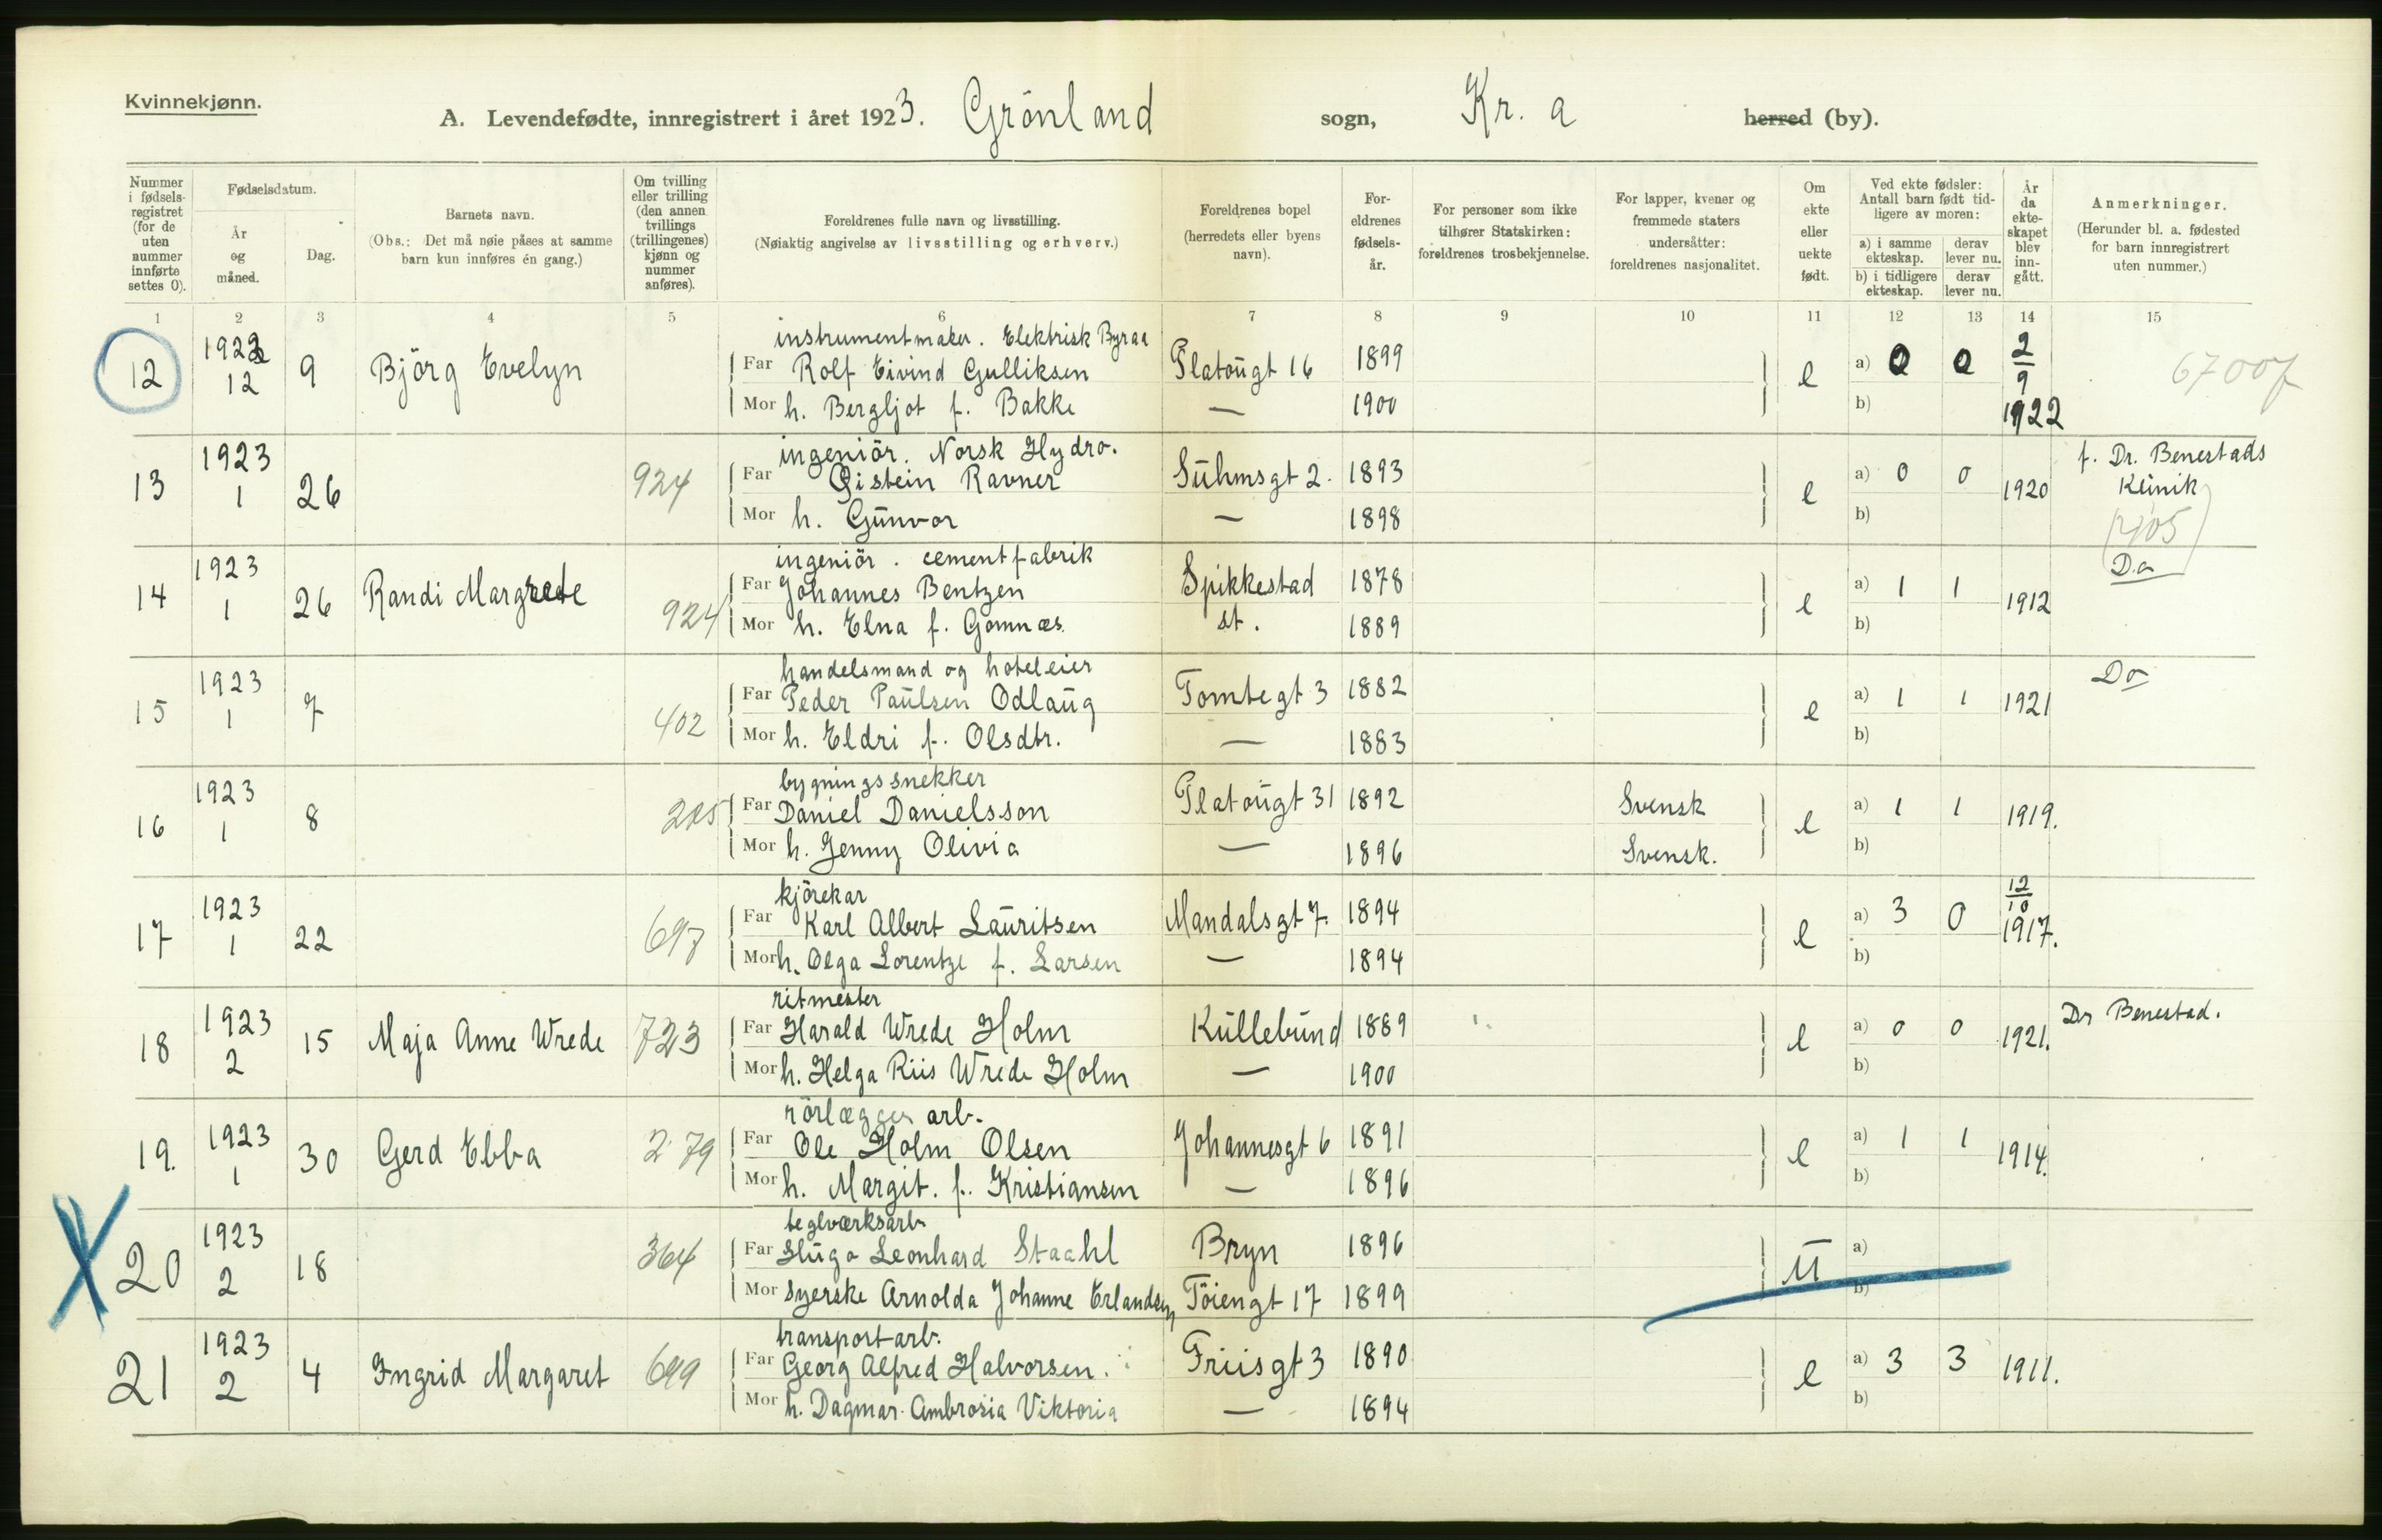 Kvinnekjønn.
A. Levendefødte, innregistrert i året 1923. Grönland sogn, Kr. a herred (by).
Nummer i fødsels-registret (for de uten nummer innførte settes 0).
Fødselsdatum.
År og måned.
Dag.
Barnets navn.
(Obs.: Det må nøie påses at samme barn kun innføres én gang.)
Om tvilling eller trilling (den annen tvillings (trillingenes) kjønn og nummer anføres).
Foreldrenes fulle navn og livsstilling.
(Nøiaktig angivelse av livsstilling og erhverv.)
Foreldrenes bopel (herredets eller byens navn).
For-eldrenes fødsels-år.
For personer som ikke tilhører Statskirken: foreldrenes trosbekjennelse.
For lapper, kvener og fremmede staters undersåtter: foreldrenes nasjonalitet.
Om ekte eller uekte født.
Ved ekte fødsler: Antall barn født tid-ligere av moren:
a) i samme ekteskap. derav lever nu.
b) i tidligere ekteskap. derav lever nu.
År da ekte-skapet blev inn-gått.
Anmerkninger.
(Herunder bl. a. fødested for barn innregistrert uten nummer.)
1 2 3 4 5 6 7 8 9 10 11 12 13 14 15
instrumentmaker. Elektrisk Byraa
12 1922 12 9 Björg Evelyn Far Rolf Eivind Gulliksen Platougt 16 1899 e a) 0 0 2/9 1922 67007
Mor h. Bergljot f. Bakke — 1900 b)
ingeniör. Norsk Hydro.
13 1923 1 26 924 Far Öistein Ravner Suhmsgt 2. 1893 e a) 0 0 1920 f. Dr. Benestads Klinik
Mor h. Gunvor — 1898 b)
ingeniör. cementfabrik
14 1923 1 26 Randi Margrete 924 Far Johannes Bentzen Spikkestad st. 1878 e a) 1 1 1912 Do
Mor h. Elna f. Gomnæs. 1889 b)
handelsmand og hoteleier
15 1923 1 7 402 Far Peder Paulsen Odlaug Tomtegt 3 1882 e a) 1 1 1921 Do
Mor h. Eldri f. Olsdtr. — 1883 b)
bygningssnekker
16 1923 1 8 Far Daniel Danielsson Platougt 31 1892 Svensk e a) 1 1 1919.
Mor h. Jenny Olivia — 1896 Svensk. b)
kjörekar
17 1923 1 22 697 Far Karl Albert Lauritsen Mandalsgt 7. 1894 e a) 3 0 12/10 1917.
Mor h. Olga Lorentze f. Larsen — 1894 b)
ritmester
18 1923 2 15 Maja Anne Wrede 723 Far Harald Wrede Holm Kullebund 1889 e a) 0 0 1921. Dr Benestad.
Mor h. Helga Riis Wrede Holm — 1900 b)
rörlægger arb.
19. 1923 1 30 Gerd Ebba 279 Far Ole Holm Olsen Johannesgt 6 1891 e a) 1 1 1914.
Mor h. Margit. f. Kristiansen — 1896 b)
teglværksarb
20 1923 2 18 364 Far Hugo Leonhard Staahl Bryn 1896 U a)
Mor syerske Arnolda Johanne Erlandsen Töiengt 17 1899 b)
transportarb.
21 1923 2 4 Ingrid Margaret 699 Far Georg Alfred Halvorsen. Friisgt 3 1890 e a) 3 3 1911.
Mor h. Dagmar Ambrosia Viktoria — 1894 b)